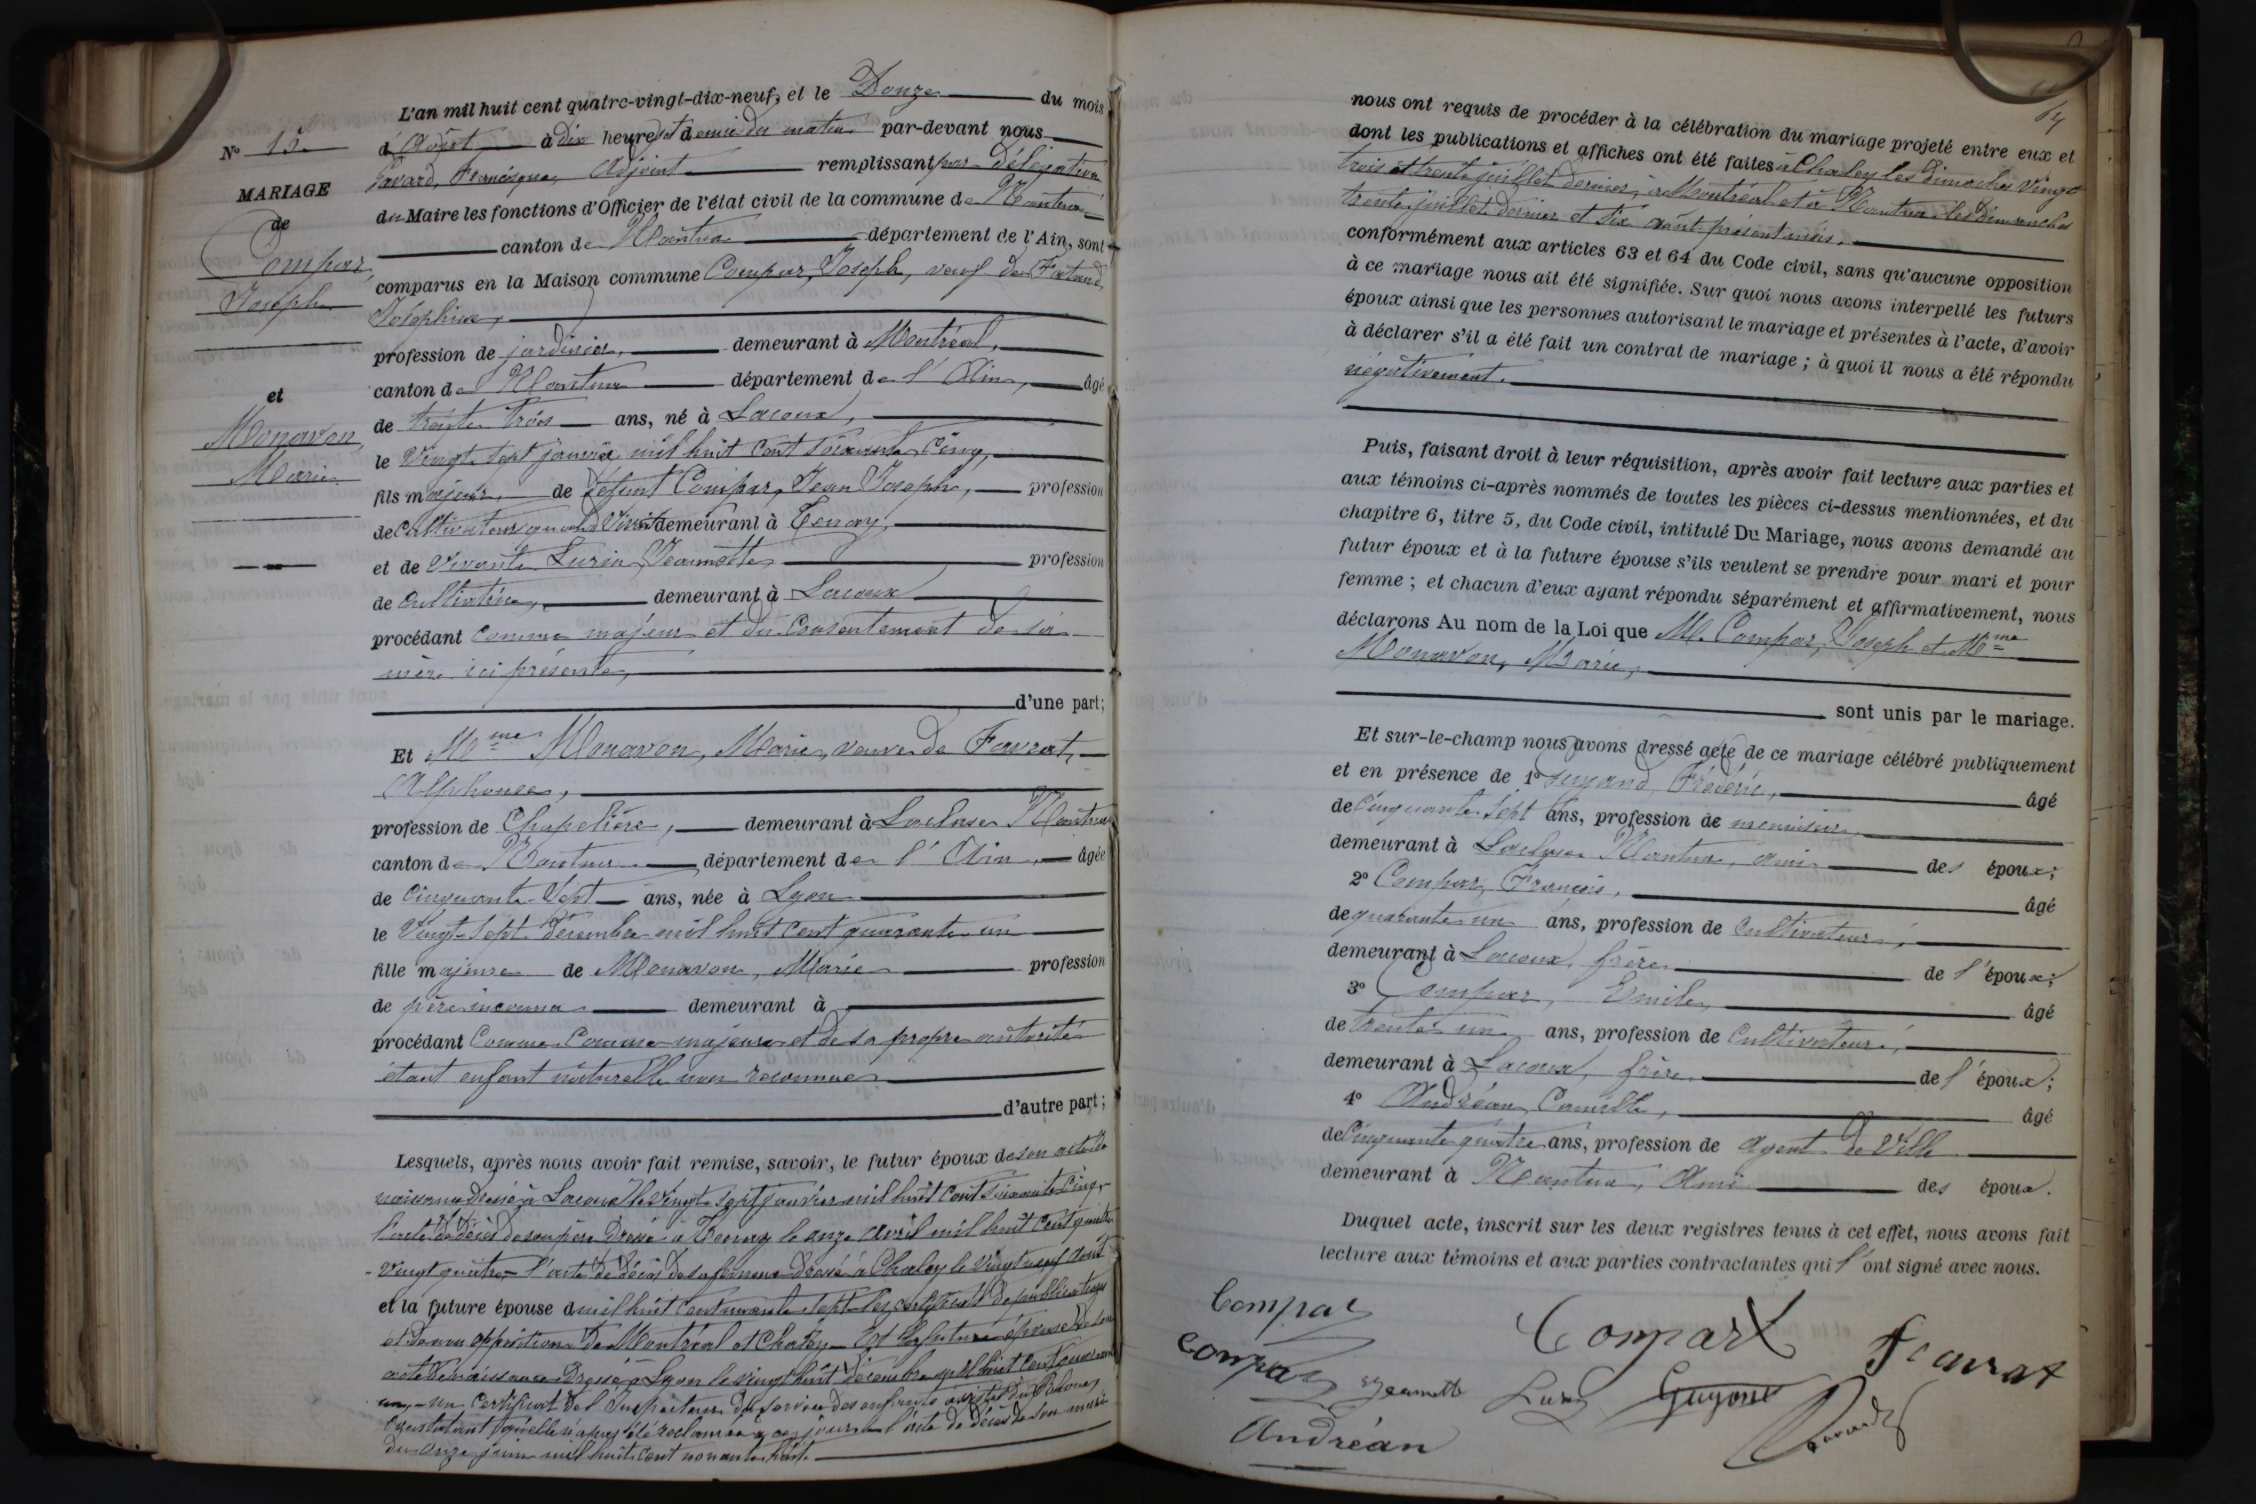 L'an mil huit cent quatre-vingt-dix-neuf, et le Douze du mois
N° 15 d'Août à dix heures et demie du matin par-devant nous
MARIAGE
de
Compar,
Joseph
et
Monavon,
Marie
Savard, Francisque, Adjoint remplissant par délégation
du Maire les fonctions d'Officier de l'état civil de la commune de Nantua
canton de Nantua département de l'Ain, sont
comparus en la Maison commune Compar, Joseph, veuf de
Joséphine,
profession de jardinier, demeurant à Montréal,
canton de Nantua département de l'Ain, âgé
de trente trois ans, né à Lacoux,
le Vingt-sept janvier mil huit cent soixante cinq,
fils majeur, de défunt Compar, Jean Joseph, profession
de Cultivateur quand vivait demeurant à Tenay,
et de vivante Luzin Jeannette profession
de Cultivatrice, demeurant à Lacoux
procédant comme majeur et du consentement de sa
mère ici présente,
d'une part;
Et Mme Monavon, Marie, veuve de Favrat,
Alphonse,
profession de Chapelière, demeurant à Lacluse Nantua
canton de Nantua département de l'Ain, âgée
de cinquante-sept ans, née à Lyon
le Vingt-sept décembre mil huit cent quarante un
fille majeure de Monavon, Marie profession
de père inconnu demeurant à
procédant Comme Comme majeure et de sa propre autorité
étant enfant naturelle non reconnue
d'autre part;
Lesquels, après nous avoir fait remise, savoir, le futur époux de son acte de
naissance dressé à Lacoux le vingt sept janvier mil huit cent soixante cinq,
l'acte de décès de son père dressé à Tenay le onze avril mil huit cent quatre
-vingt quatre - l'acte de décès de sa femme dressé à Chaley le vingt neuf août
et la future épouse d mil huit cent nonante sept les certificats de publications
et de non opposition de Montréal et Chaley - Et la future épouse de son
acte de naissance dressé à Lyon le vingt huit décembre mil huit cent quarante
un, - un certificat de l'Inspecteur du service des enfants assistés du Rhône
constatant qu'elle n'a pas été réclamée à ce jour et l'acte de décès de son mari
du onze juin mil huit cent nonante huit
nous ont requis de procéder à la célébration du mariage projeté entre eux et
dont les publications et affiches ont été faites à Chaley les dimanches vingt
trois et trente juillet dernier, à Montréal et à Nantua les dimanches
trente juillet dernier et six août présent mois,
conformément aux articles 63 et 64 du Code civil, sans qu'aucune opposition
à ce mariage nous ait été signifiée. Sur quoi nous avons interpellé les futurs
époux ainsi que les personnes autorisant le mariage et présentes à l'acte, d'avoir
à déclarer s'il a été fait un contrat de mariage; à quoi il nous a été répondu
négativement.
Puis, faisant droit à leur réquisition, après avoir fait lecture aux parties et
aux témoins ci-après nommés de toutes les pièces ci-dessus mentionnées, et du
chapitre 6, titre 5, du Code civil, intitulé Du Mariage, nous avons demandé au
futur époux et à la future épouse s'ils veulent se prendre pour mari et pour
femme; et chacun d'eux ayant répondu séparément et affirmativement, nous
déclarons Au nom de la Loi que M. Compar, Joseph et Mme
Monavon, Marie,
sont unis par le mariage.
Et sur-le-champ nous avons dressé acte de ce mariage célébré publiquement
et en présence de 1° Frédéric, âgé
de Cinquante sept ans, profession de menuisier
demeurant à Lacluse Nantua, ami des époux;
2° Compar, François, âgé
de quarante un ans, profession de Cultivateur,
demeurant à Lacoux, frère de l'époux;
3° Compar, Emile, âgé
de trente un ans, profession de Cultivateur,
demeurant à Lacoux, frère de l'époux;
4° Andréan, Camille, âgé
de Cinquante quatre ans, profession de agent de ville
demeurant à Nantua, Ami des époux.
Duquel acte, inscrit sur les deux registres tenus à cet effet, nous avons fait
lecture aux témoins et aux parties contractantes qui l'ont signé avec nous.
Compar Compart Favrat
Compar Jeannette Luzin Guyone
Andréan